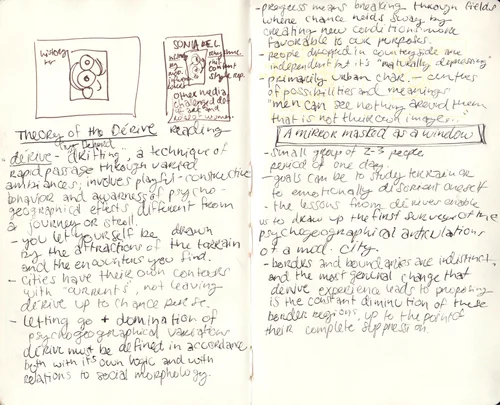 without
SONIA DEL
rhythm.
but
content
style rep.
other media
challenged def
of art and
Theory of the Dérive reading
by Debord
- dérive - drifting, a technique of
rapid passage through varied
ambiances; involves playful-constructive
behavior and awareness of psycho-
geographical effects different from
a journey or stroll.
- you let yourself be drawn
by the attractions of the terrain
and the encounters you find.
- cities have their own contours
with "currents", not leaving
dérive up to chance
- letting go + domination of
psychogeographical variations
dérive must be defined in accordance
both with its own logic and with
relations to social morphology.
- progress means breaking through fields
where chance holds sway by
creating new conditions more
favorable to our purposes.
- people dropped in countryside are
independent but it's "naturally depressing"
- primarily urban char. - centers
of possibilities and meanings
"men can see nothing around them
that is not their own image..."
A MIRROR MASKED AS A WINDOW
- small group of 2-3 people
- period of one day.
- goals can be to study terrain or
to emotionally disorient oneself
- the lessons from dérives enable
us to draw up the first surveys of the
psychogeographical articulations
of a mod. city.
- borders and boundaries are indistinct,
and the most general change that
derive experience leads to proposing
is the constant diminution of these
border regions, up to the point of
their complete suppression.